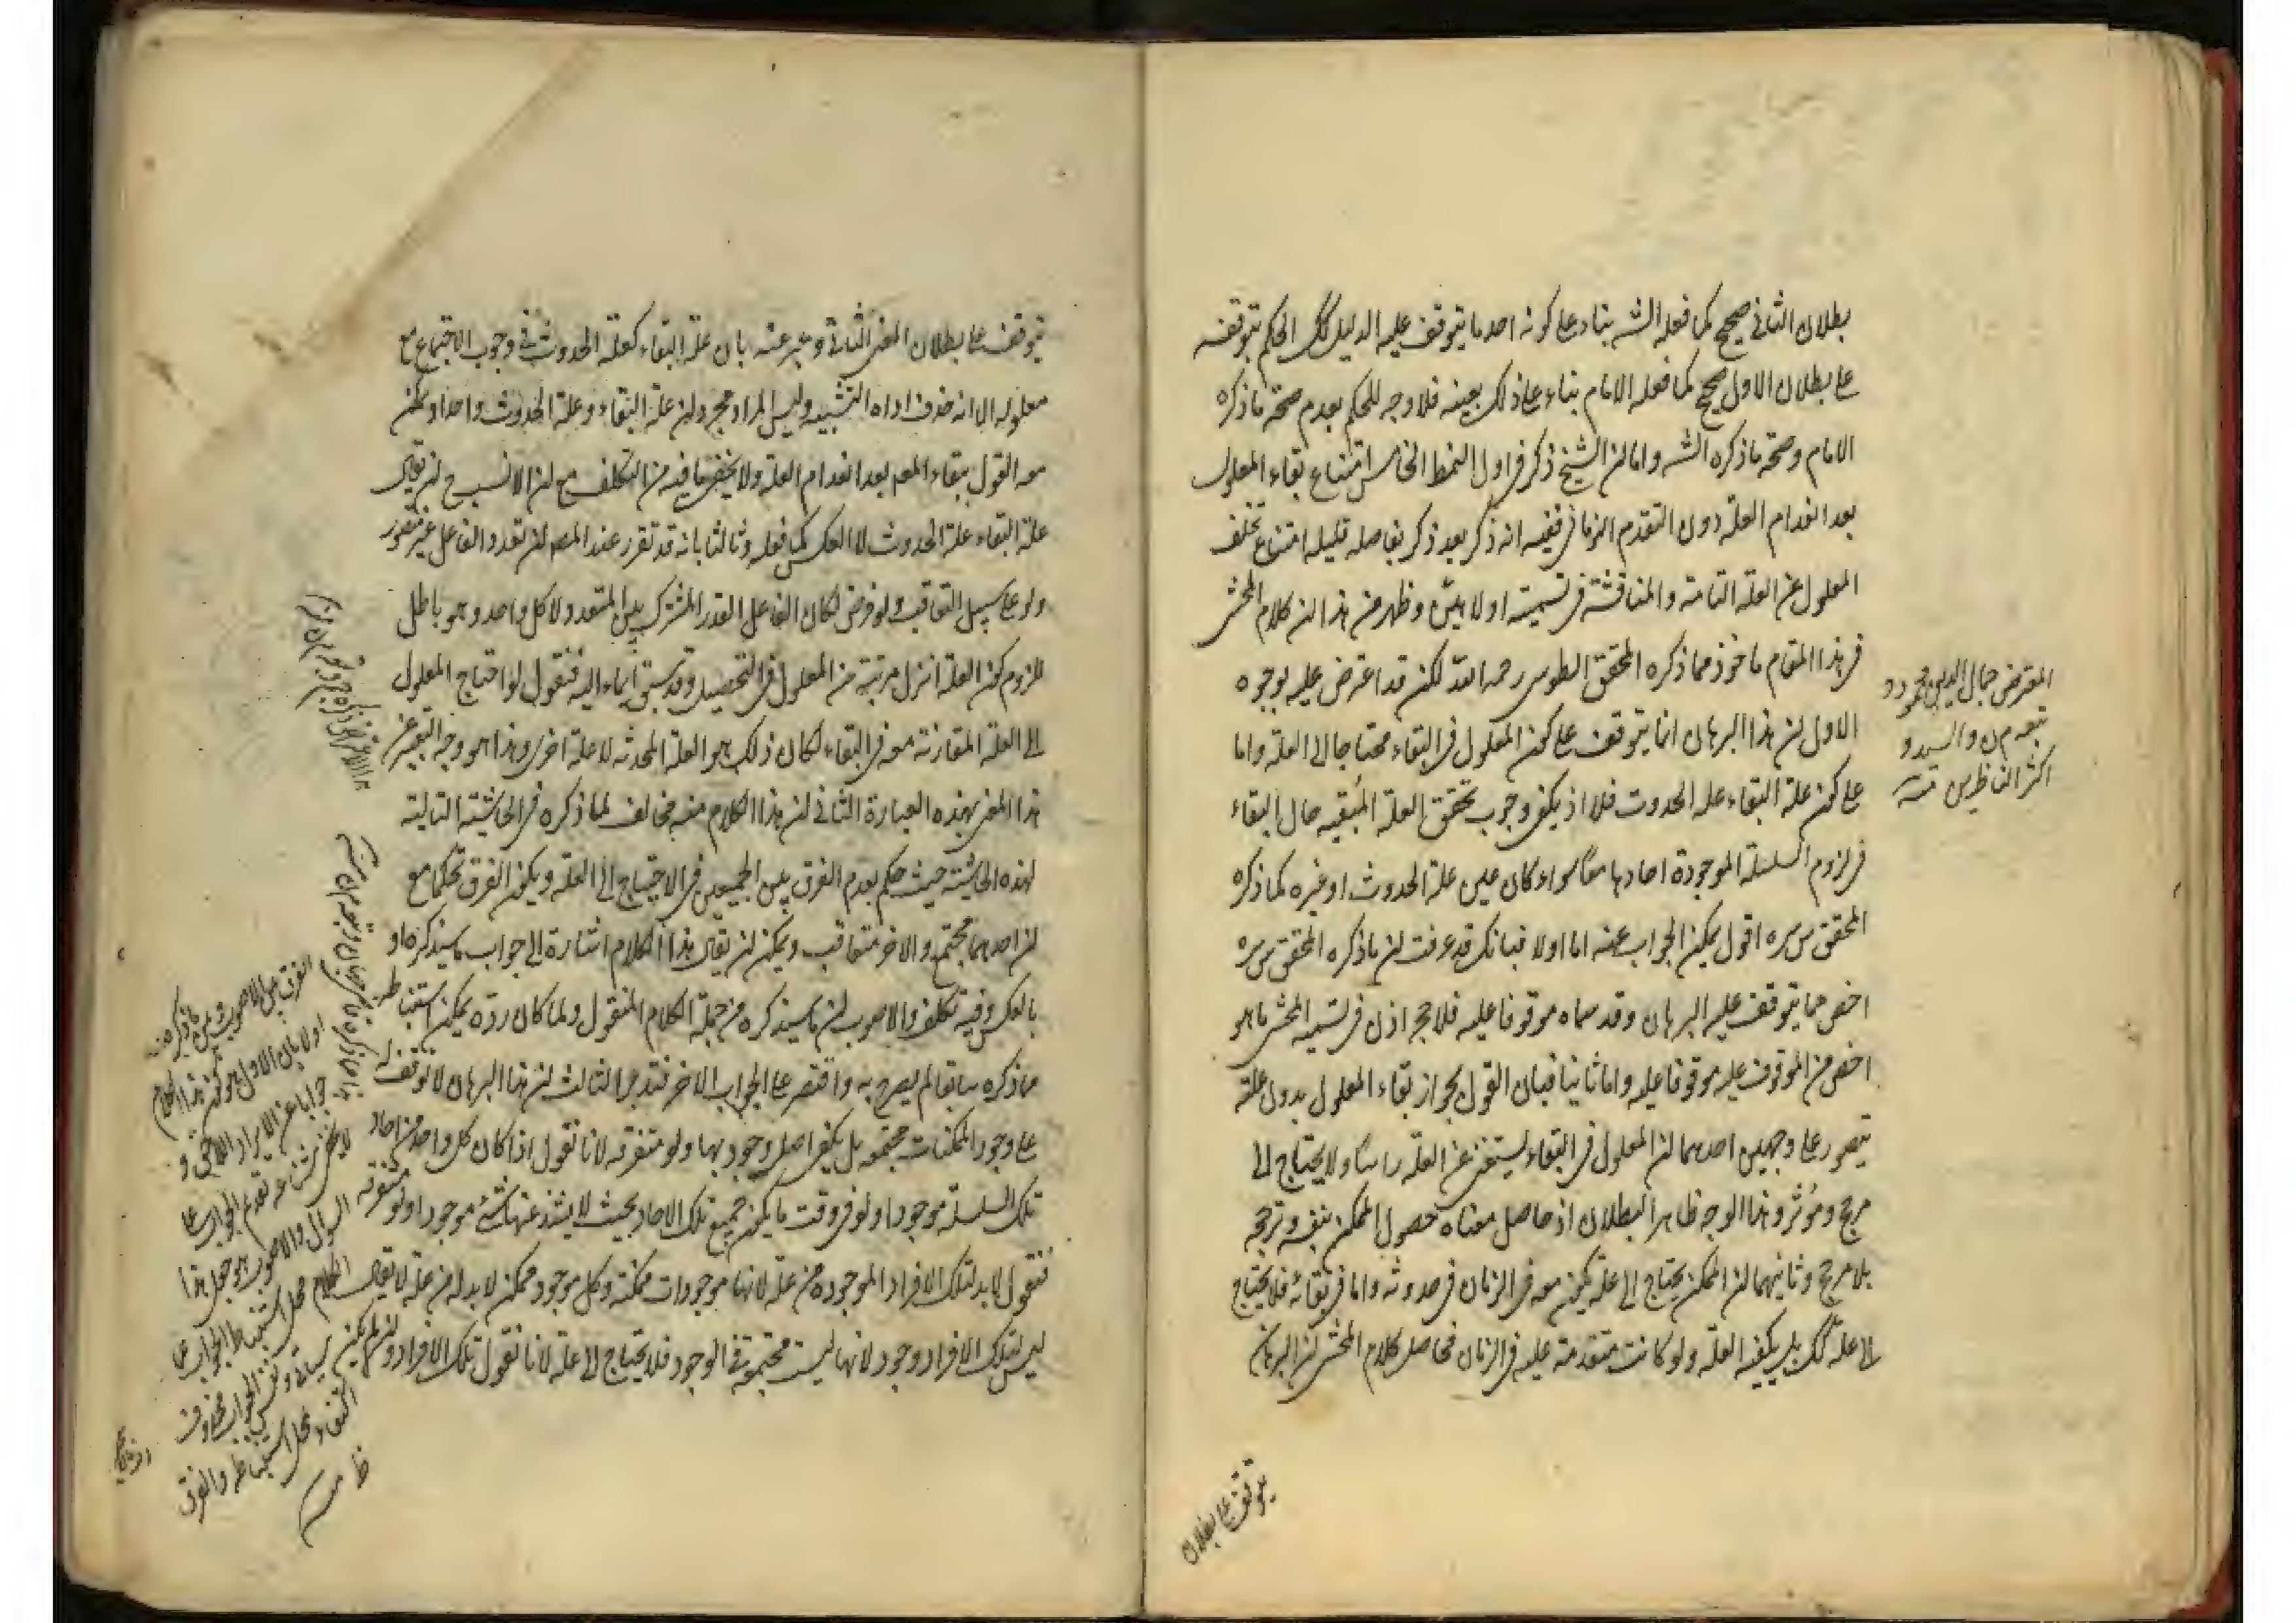 بطلان الثانى صحيح كما فعله الشه بناء على كونه احد ما يتوقف عليه الدليل كك الحكم بتوقفه
على بطلان الاول صحيح كما فعله الامام بناء على ذلك بعينه فلا وجه للحكم بعدم صحة ما ذكره
الامام وصحة ما ذكره الشه واما ان الشيخ ذكر فى اول النمط الخامس امتناع بقاء المعلول
بعد انعدام العلة دون التقدم الزمانى ففيه انه ذكر بعد ذكر بفاصله قليله امتناع تخلف
المعلول عن العلة التامة والمناقشة فى تسميته اولا هين وظهر من هذا ان كلام المحشى
فى هذا المقام ماخوذ مما ذكره المحقق الطوسى رحمه الله لكن قد اعترض عليه بوجوه
الاول ان هذا البرهان انما يتوقف على كون المعلول فى البقاء محتاجا الى العلة واما
على كون علة البقاء علة الحدوث فلا اذ يكفى وجوب تحقق العلة المبقيه حال البقاء
فى لزوم السلسلة الموجودة احادها معا سواء كان عين علة الحدوث او غيره كما ذكره
المحقق س سره اقول يمكن الجواب عنه اما اولا فبانك قد عرفت ان ما ذكره المحقق س سره
اخص مما يتوقف عليه البرهان وقد سماه موقوفا عليه فلا حجر اذن فى تسميه المحشى ما هو
اخص من الموقوف عليه موقوفا عليه واما ثانيا فبان القول بجواز بقاء المعلول بدون علته
يتصور على وجهين احدهما ان المعلول فى البقاء يستغنى عن العلة راسا ولا يحتاج الى
مرجح ومؤثر وهذا الوجه ظاهر البطلان اذ حاصل معناه حصول الممكن بنفسه وترجحه
بلا مرجح وثانيهما ان الممكن يحتاج الى علة يكون معه فى الزمان فى حدوثه واما فى بقائه فلا يحتاج
الى علة كك بل يكفيه العلة ولو كانت متقدمة عليه فى الزمان فحاصل كلام المحشى ان البرهان
يتوقف على بطلان
المعترض جمال الدين محمود و
تبعه من والسيد و
اكثر الناظرين منه
يتوقف على بطلان المعنى الثانى وعبر عنه بان علة البقاء كعلة الحدوث فى وجوب الاجتماع مع
معلوله الا انه حذف اداه التشبيه وليس المراد مجرد ان علة البقاء وعلة الحدوث واحد او يمكن
معه القول ببقاء المعه بعد انعدام العلة ولا يخفى ما فيه من التكلف مع ان الانسب ح ان يقال
علة البقاء علة الحدوث لا العكس كما فعله وثالثا بانه قد تقرر عند المصه ان تعدد الفاعل غير متصور
ولو على سبيل التعاقب ولو فرض لكان الفاعل القدر المشترك بين المتعدد لا كل واحد وهو باطل
للزوم كون العلة انزل مرتبة من المعلول فى التحصيل وقد سبق ايماء اليه فنقول لو احتاج المعلول
الى العلة المقارنة معه فى البقاء لكان ذلك هو العلة المحدثه لا علة اخرى وهذا هو وجه التعبير عن
هذا المعنى بهذه العبارة الثانى ان هذا الكلام منه مخالف لما ذكره فى الحاشية التالية
لهذه الحاشية حيث حكم بعدم الفرق بين الجميعين فى الاحتياج الى العلة ويكون الفرق تحكما مع
ان احدهما مجتمع والاخر متعاقب ويمكن ان يقال هذا الكلام اشارة الى جواب ما سيذكره او
بالعكس وفيه تكلف والاصوب ان ما سيذكره من جملة الكلام المنقول ولما كان رده يمكن استنباطه
مما ذكره سابقا لم يصرح به واقتصر على الجواب الاخر فتدبر الثالث ان هذا البرهان لا توقف له
على وجود الممكنات مجتمعه بل يكفى اصل وجودها ولو متفرقه لانا نقول اذا كان كل واحد من احاد
تلك السلسلة موجودا ولو فى وقت ما يكون جميع تلك الاحاد بحيث لا يشذ عنها شئ موجودا ولو متفرقه
فنقول لا بد لتلك الافراد الموجوده من علة لانها موجودات ممكنة وكل موجود ممكن لا بد له من علة لا يقال
ليس لتلك الافراد وجود لانها ليست مجتمعة فى الوجود فلا يحتاج الى علة لانا نقول تلك الافراد وان لم يكن
اولا بان الاول هو كون هذا الكلام
جوابا عن الايراد الاتى و
لا يخفى شناعة تقدم الجواب على
السوال والاصوب هو جعل هذا
الكلام محل استنباط الجواب عما